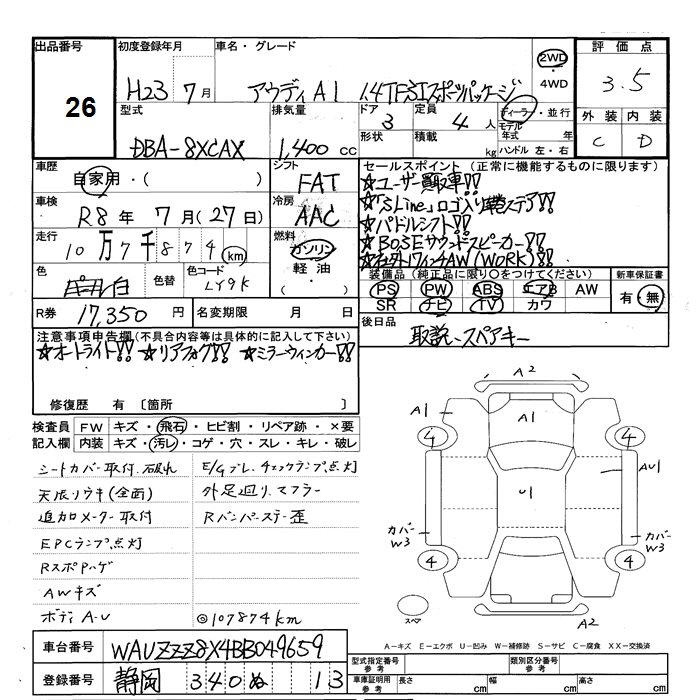 出品番号 初度登録年月 車名・グレード 評価点
26 H23 7月 アウディA1 1.4TFSIスポーツパッケージ 2WD・4WD 3.5
型式 排気量 ドア 定員 ディーラー・並行 外装 内装
DBA-8XCAX 1,400cc 3 4人 モデル年式 年 C D
形状 積載 kg ハンドル 左・右
車歴 自家用・( ) シフト FAT セールスポイント(正常に機能するものに限ります)
☆ユーザー買取車!!
車検 R8年 7月(27日) 冷房 AAC ☆「SLine」ロゴ入り革巻ステア!!
☆パドルシフト!!
走行 10万7千874km 燃料 ガソリン・軽油・( ) ☆BOSEサウンドスピーカー!!
17インチAW(WORK)!!
色 パール白 色替 色コード LY9K 装備品(純正品に限り〇をつけてください) 新車保証書
PS PW ABS エアB AW 有・無
SR ナビ TV カワ
R券 17,350円 名変期限 月 日 後日品
取説、スペアキー
注意事項申告欄(不具合内容等は具体的に記入して下さい)
☆オートライト!! ☆リアフォグ!! ☆ミラーウィンカー!!
修復歴 有〔箇所 〕
検査員記入欄 FW キズ・飛石・ヒビ割・リペア跡・×要
内装 キズ・汚レ・コゲ・穴・スレ・キレ・破レ
シートカバー取付、破れ E/Gブレ、チェックランプ点灯
天張りウキ(全面) 外足廻り、マフラー
追加メーター取付 Rバンパーステー歪
EPCランプ点灯
Rスポハゲ
AWキズ
ボディA・U ◎107874km
A2
A1 A1
4 4
AU1
U1
カバーW3 カバーW3
4 4
スペア A2
A−キズ E−エクボ U−凹み W−補修跡 S−サビ C−腐食 XX−交換済
車台番号 WAUZZZ8X4BB049659
登録番号 静岡 340 ぬ 13
型式指定番号 参考 類別区分番号 参考
車庫証明用 参考 長さ cm 幅 cm 高さ cm